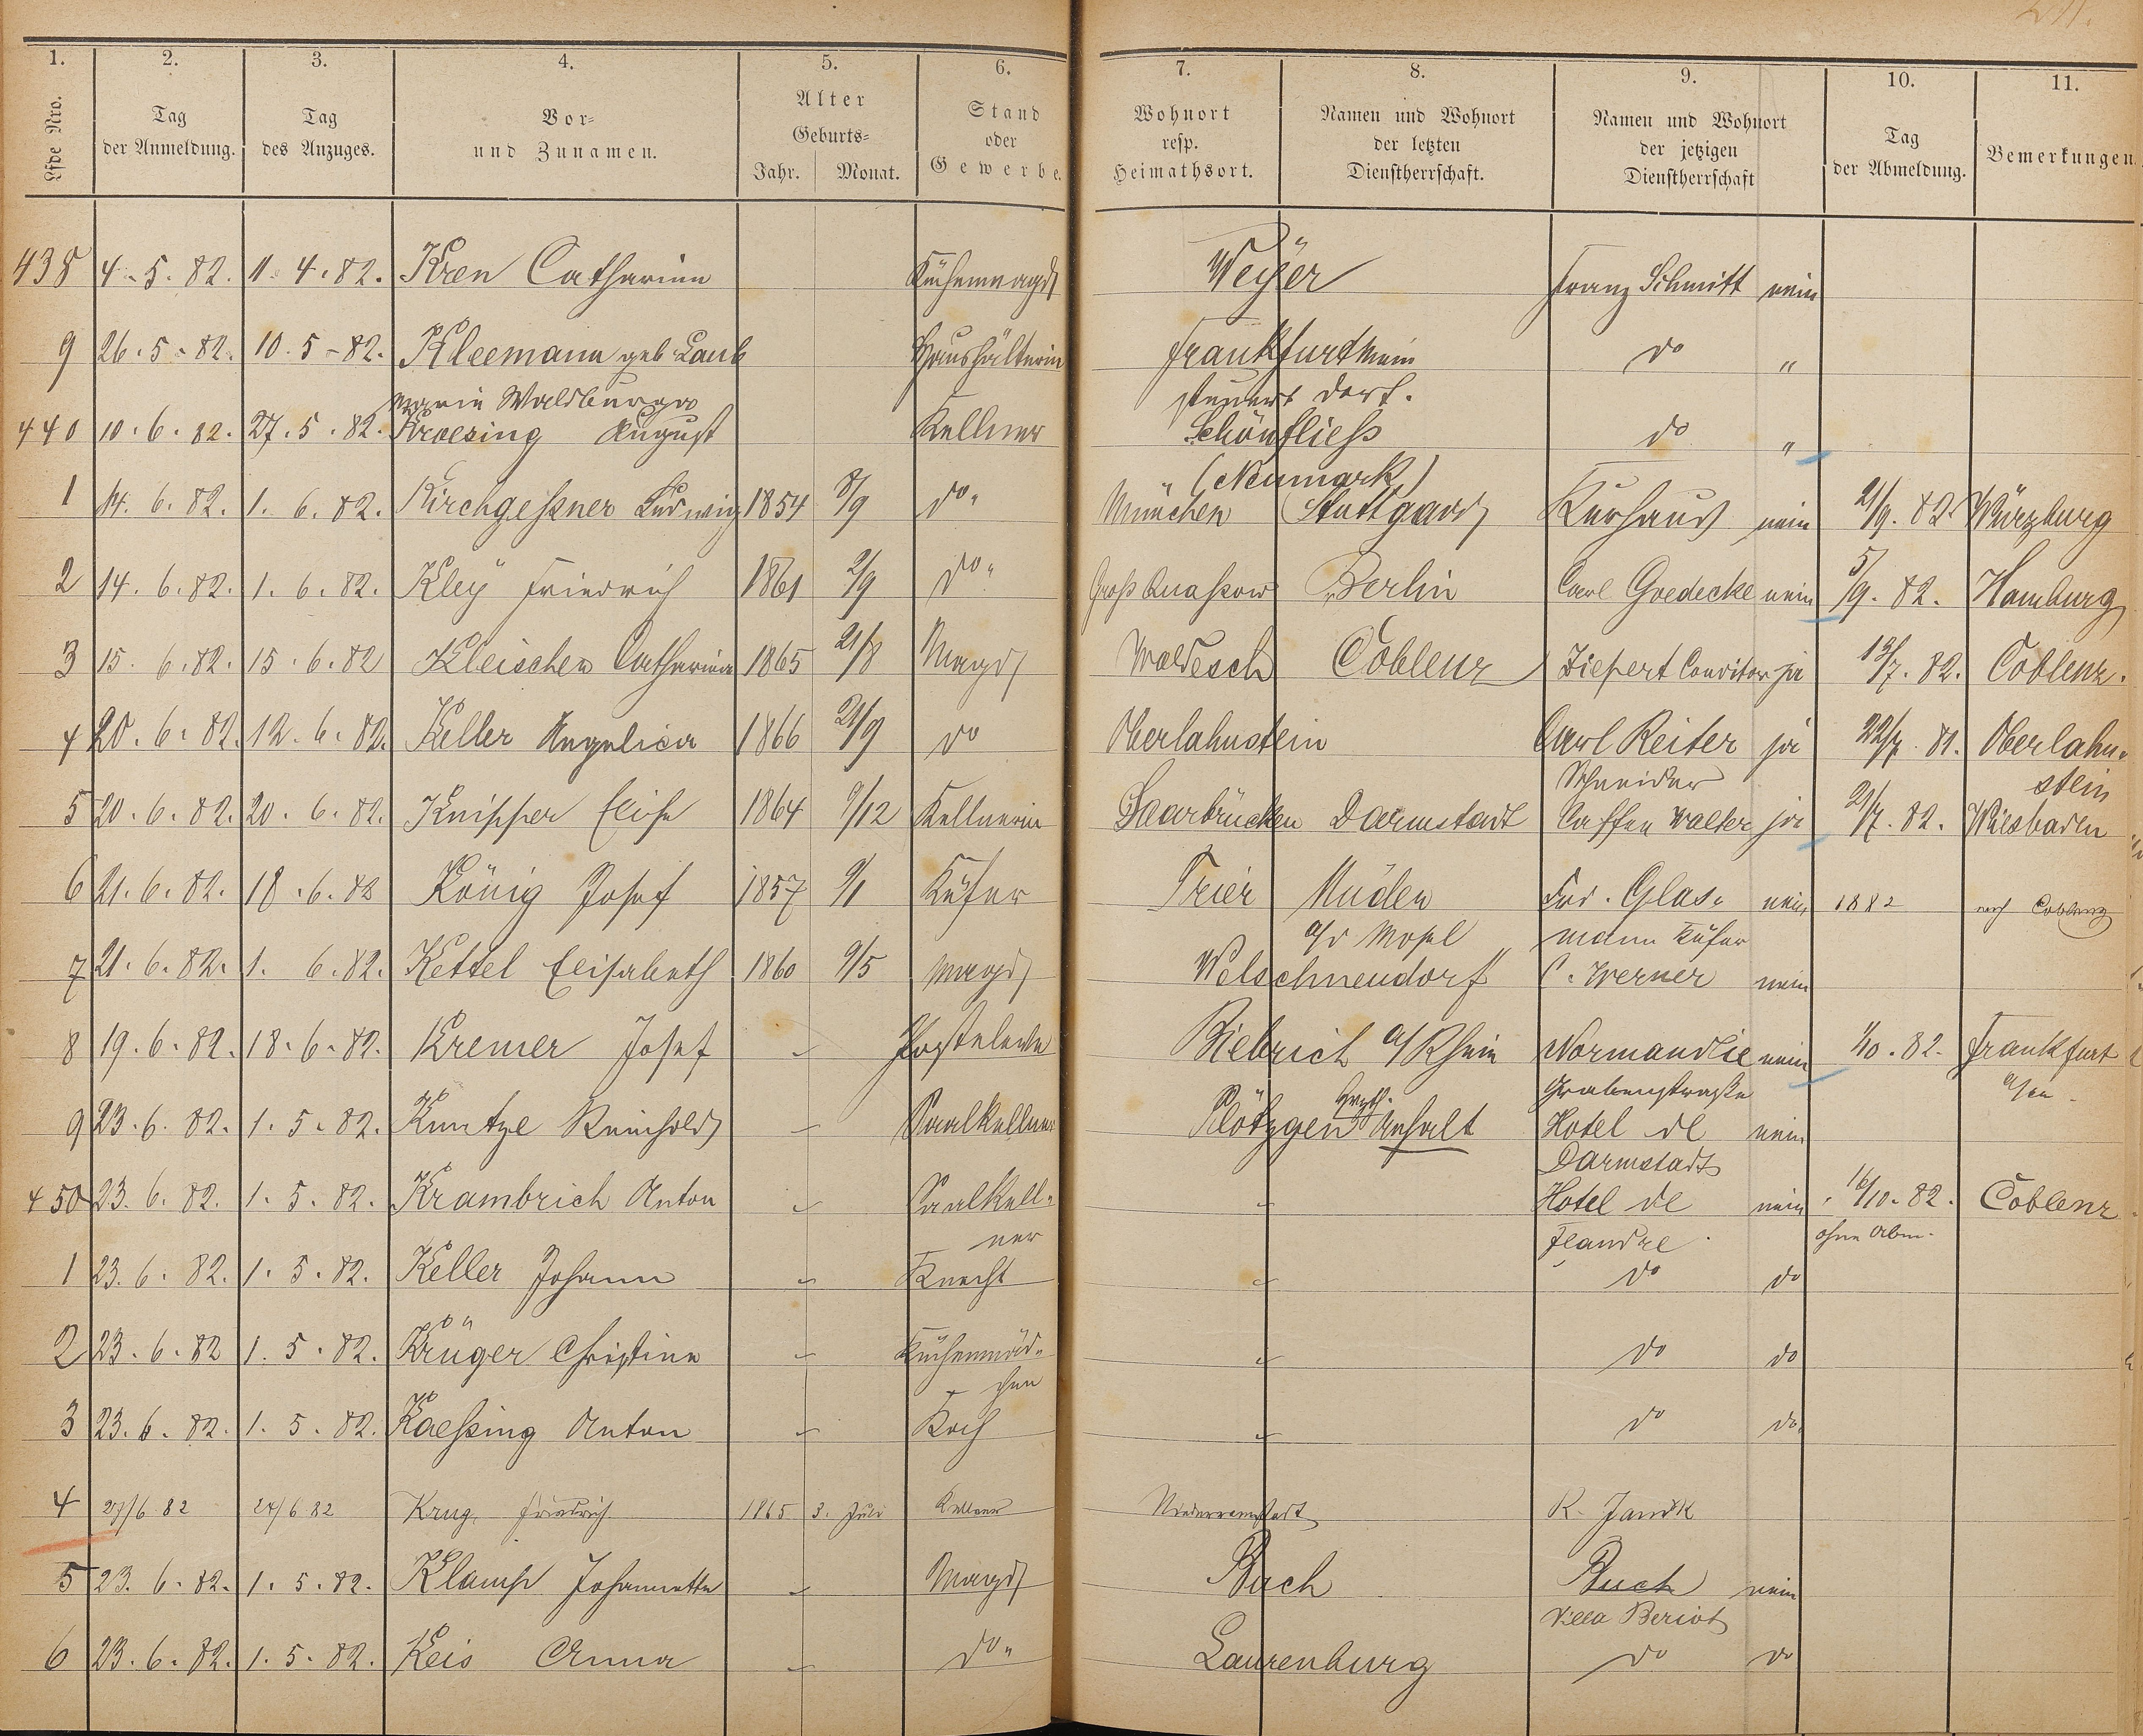 1. 2. 3. 4. 5. 6. 7. 8. 9. 10. 11.
Lfde Nro. Tag der Anmeldung. Tag des Anzuges. Vor- und Zunamen. Alter Geburts- Jahr. Monat. Stand oder Gewerbe. Wohnort resp. Heimathsort. Namen und Wohnort der letzten Dienstherrschaft. Namen und Wohnort der jetzigen Dienstherrschaft Tag der Abmeldung. Bemerkungen.
438 4.5.82. 11.4.82. Kren Catharina Küchenmagd Weyer Franz Schmitt nein
9 26.5.82. 10.5.82. Kleemann geb Laub Haushälterin Frankfurt Main do "
Maria Waldburga steuert dort.
440 10.6.82. 27.5.82. Kroesing August Kellner Schönfließ do "
(Neumark)
1 14.6.82. 1.6.82. Kirchgeßner Ludwig 1854 8/9 do" München Stuttgard Kurhaus nein 21/9.82 Würzburg
2 14.6.82. 1.6.82. Kleÿ Friedrich 1861 2/9 do" Groß Quaßow Berlin Carl Goedecke nein 5/9.82. Hamburg
3 15.6.82. 15.6.82 Kleischen Catharina 1865 21/8 Magd Waldesch Coblenz Ziepert Conditor ja 13/7.82. Coblenz.
4 20.6.82. 12.6.82. Keller Angelica 1866 21/9 do Oberlahnstein Carl Reiter ja 22/7.81. Oberlahn-
Schneider stein
5 20.6.82. 20.6.82. Knipper Elise 1864 9/12 Kellnerin Saarbrücken Darmstadt Caffee Walter ja 21/7.82. Wiesbaden
6 21.6.82. 18.6.82 König Josef 1857 9/1 Küfer Trier Müden Ferd. Glas- nein 1882 nach Coblenz
a/d Mosel mann Küfer
7 21.6.82. 1.6.82. Kettel Elisabeth 1860 9/5 Magd Welschneudorf C. Werner nein
8 19.6.82. 18.6.82. Kremer Josef Posteleve Biebrich a/Rhein Normandie nein 1/10.82. Frankfurt
Grabenstraße
9 23.6.82. 1.5.82. Kuntze Reinhold Saalkellner Plötzgen Anhalt Hotel de nein
Darmstadt
450 23.6.82. 1.5.82. Krambrich Anton Saalkell- Hotel de nein 16/10.82. Coblenz
ner Flandre ohne Abm.
1 23.6.82. 1.5.82. Keller Johann Knecht do do
2 23.6.82 1.5.82. Krüger Christine Küchenmäd- do do
chen
3 23.6.82. 1.5.82. Kaeßing Anton Koch do do
4 27/6 82 24/6 82 Krug Friedrich 1865 3. Juli Kellner K. Jandk
5 23.6.82. 1.5.82. Klamp Johannette Magd Buch Buch nein
Villa Beriot
6 23.6.82. 1.5.82. Keis Anna do" Laurenburg do do